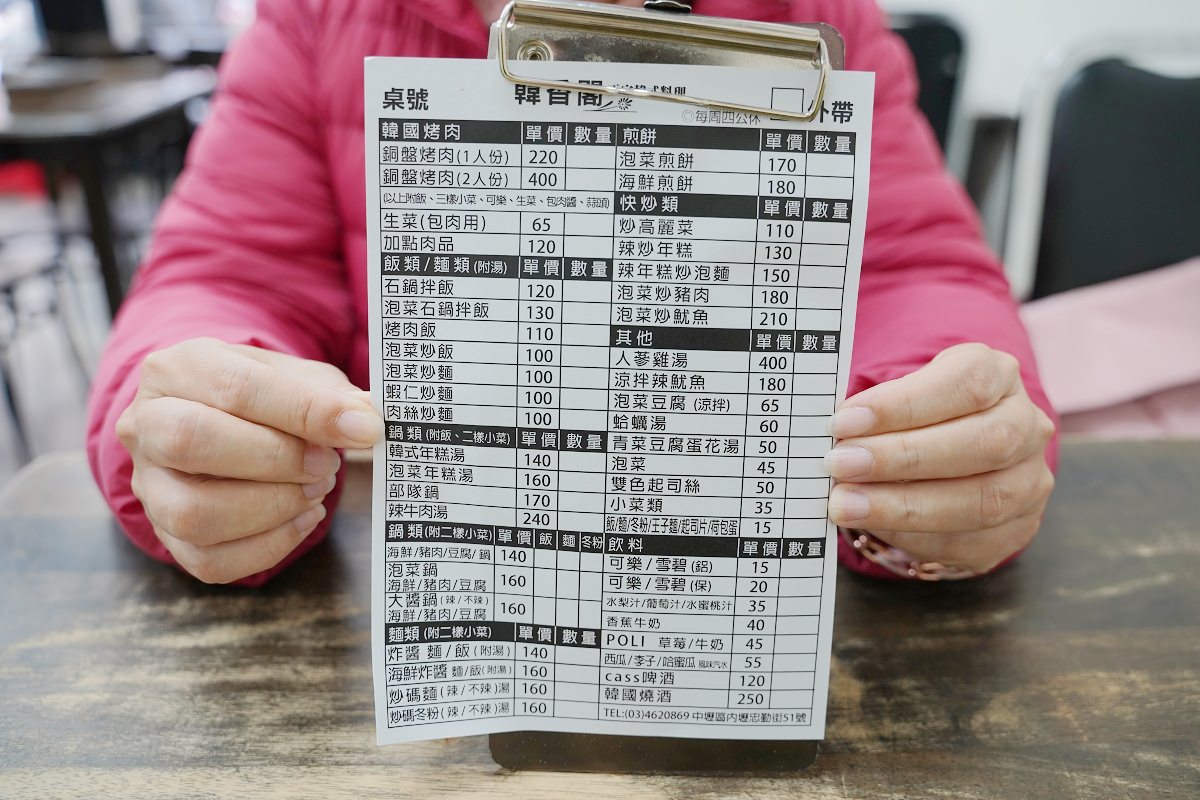 桌號
韓香閣
韓式料理
◎每周四公休
外帶
韓國烤肉 單價 數量
銅盤烤肉(1人份) 220
銅盤烤肉(2人份) 400
(以上附飯、三樣小菜、可樂、生菜、包肉醬、蒜頭)
生菜(包肉用) 65
加點肉品 120
飯類/麵類(附湯) 單價 數量
石鍋拌飯 120
泡菜石鍋拌飯 130
烤肉飯 110
泡菜炒飯 100
泡菜炒麵 100
蝦仁炒麵 100
肉絲炒麵 100
鍋類(附飯、二樣小菜) 單價 數量
韓式年糕湯 140
泡菜年糕湯 160
部隊鍋 170
辣牛肉湯 240
鍋類(附二樣小菜) 單價 飯 麵 冬粉
海鮮/豬肉/豆腐/鍋 140
泡菜鍋
海鮮/豬肉/豆腐 160
大醬鍋(辣/不辣)
海鮮/豬肉/豆腐 160
麵類(附二樣小菜) 單價 數量
炸醬 麵/飯(附湯) 140
海鮮炸醬 麵/飯(附湯) 160
炒碼麵(辣/不辣)湯 160
炒碼冬粉(辣/不辣)湯 160
煎餅 單價 數量
泡菜煎餅 170
海鮮煎餅 180
快炒類 單價 數量
炒高麗菜 110
辣炒年糕 130
辣年糕炒泡麵 150
泡菜炒豬肉 180
泡菜炒魷魚 210
其他 單價 數量
人蔘雞湯 400
涼拌辣魷魚 180
泡菜豆腐(涼拌) 65
蛤蠣湯 60
青菜豆腐蛋花湯 50
泡菜 45
雙色起司絲 50
小菜類 35
飯/麵/冬粉/王子麵/起司片/荷包蛋 15
飲料 單價 數量
可樂/雪碧(鋁) 15
可樂/雪碧(保) 20
水梨汁/葡萄汁/水蜜桃汁 35
香蕉牛奶 40
POLI 草莓/牛奶 45
西瓜/李子/哈蜜瓜 風味汽水 55
cass啤酒 120
韓國燒酒 250
TEL:(03)4620869 中壢區內壢忠勤街51號